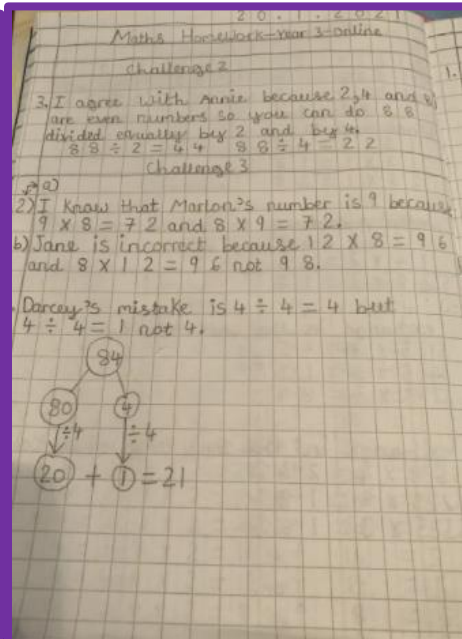 20.1.2021
Maths Homework-Year 3-online
Challenge 2
3. I agree with Annie because 2,4 and 8
are even numbers so you can do 88
divided equally by 2 and by 4.
88÷2=44 88÷4=22
Challenge 3
a)
2) I know that Marlon's number is 9 because
9×8=72 and 8×9=72.
b) Jane is incorrect because 12×8=96
and 8×12=96 not 98.
Darcey's mistake is 4÷4=4 but
4÷4=1 not 4.
84
80 4
÷4 ÷4
20 + 1 = 21
1.